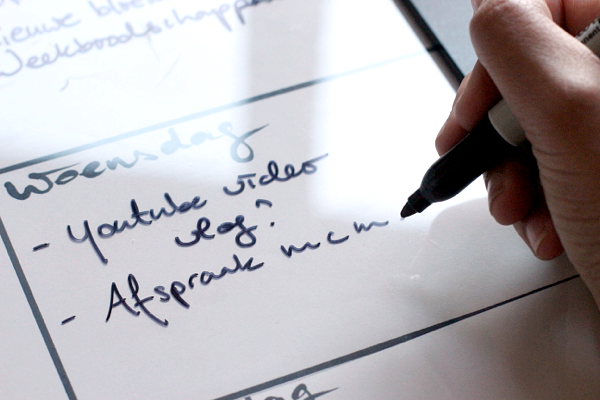 nieuwe
Weekboodschappen
Woensdag
- Youtube video
vlog?
- Afspraak mcm